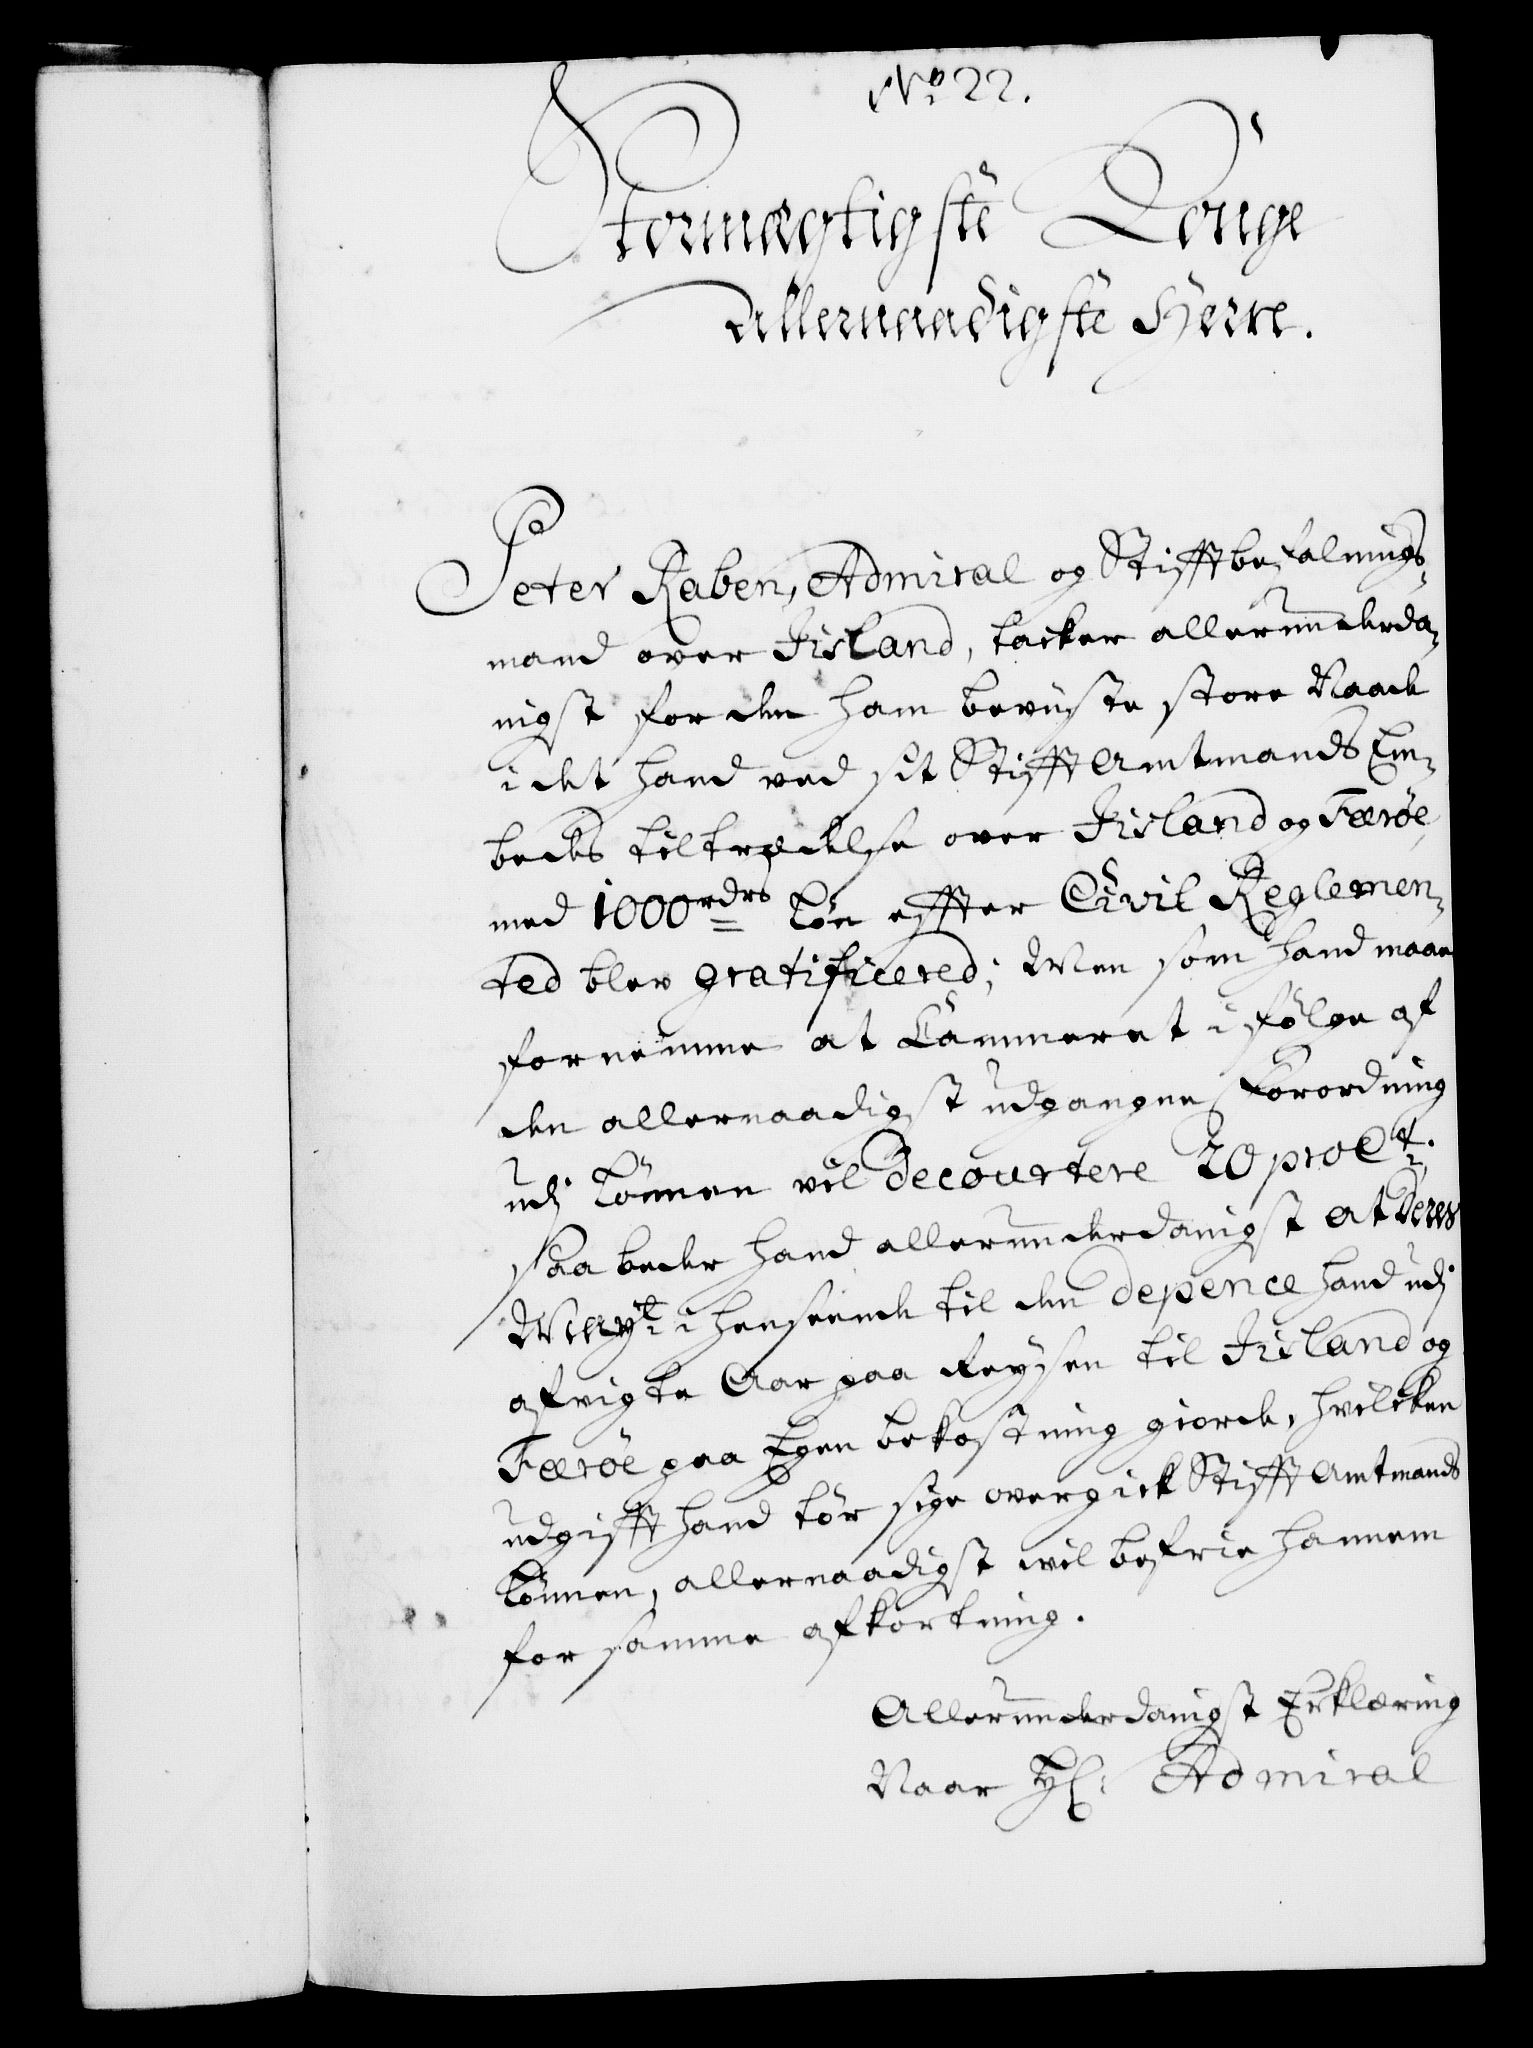 No. 22.
Stormægtigste Konge
Allernaadigste Herre.
Peter Raben, Admiral og Stifftbefalnings-
mand over Jisland, tacker allerunderda-
nigst for den ham beviiste store Naade
i det hand ved sit Stifft Amtmands Em-
beds tiltrædelse over Jisland og Færöe,
med 1000 rdrs Lön effter Civil Reglemen-
ted blev gratificered; Men som hand maae
fornemme at Cammeret i fölge af
den allernaadigst udgangne Forordning
udj Lönnen vil decourtere 20 pro Ct.
saa beder hand allerunderdanigst at Deres
Mayt. i henseende til den depence hand udj
afvigte Aar paa Reysen til Jisland og
Færöe paa Egen bekostning giorde, hvilcken
udgifft hand tör sige overgick Stifft Amtmands
Lönnen, allernaadigst vil befrie hannem
for samme afkortning.
Allerunderdanigst Erklæring
Naar Hr: Admiral